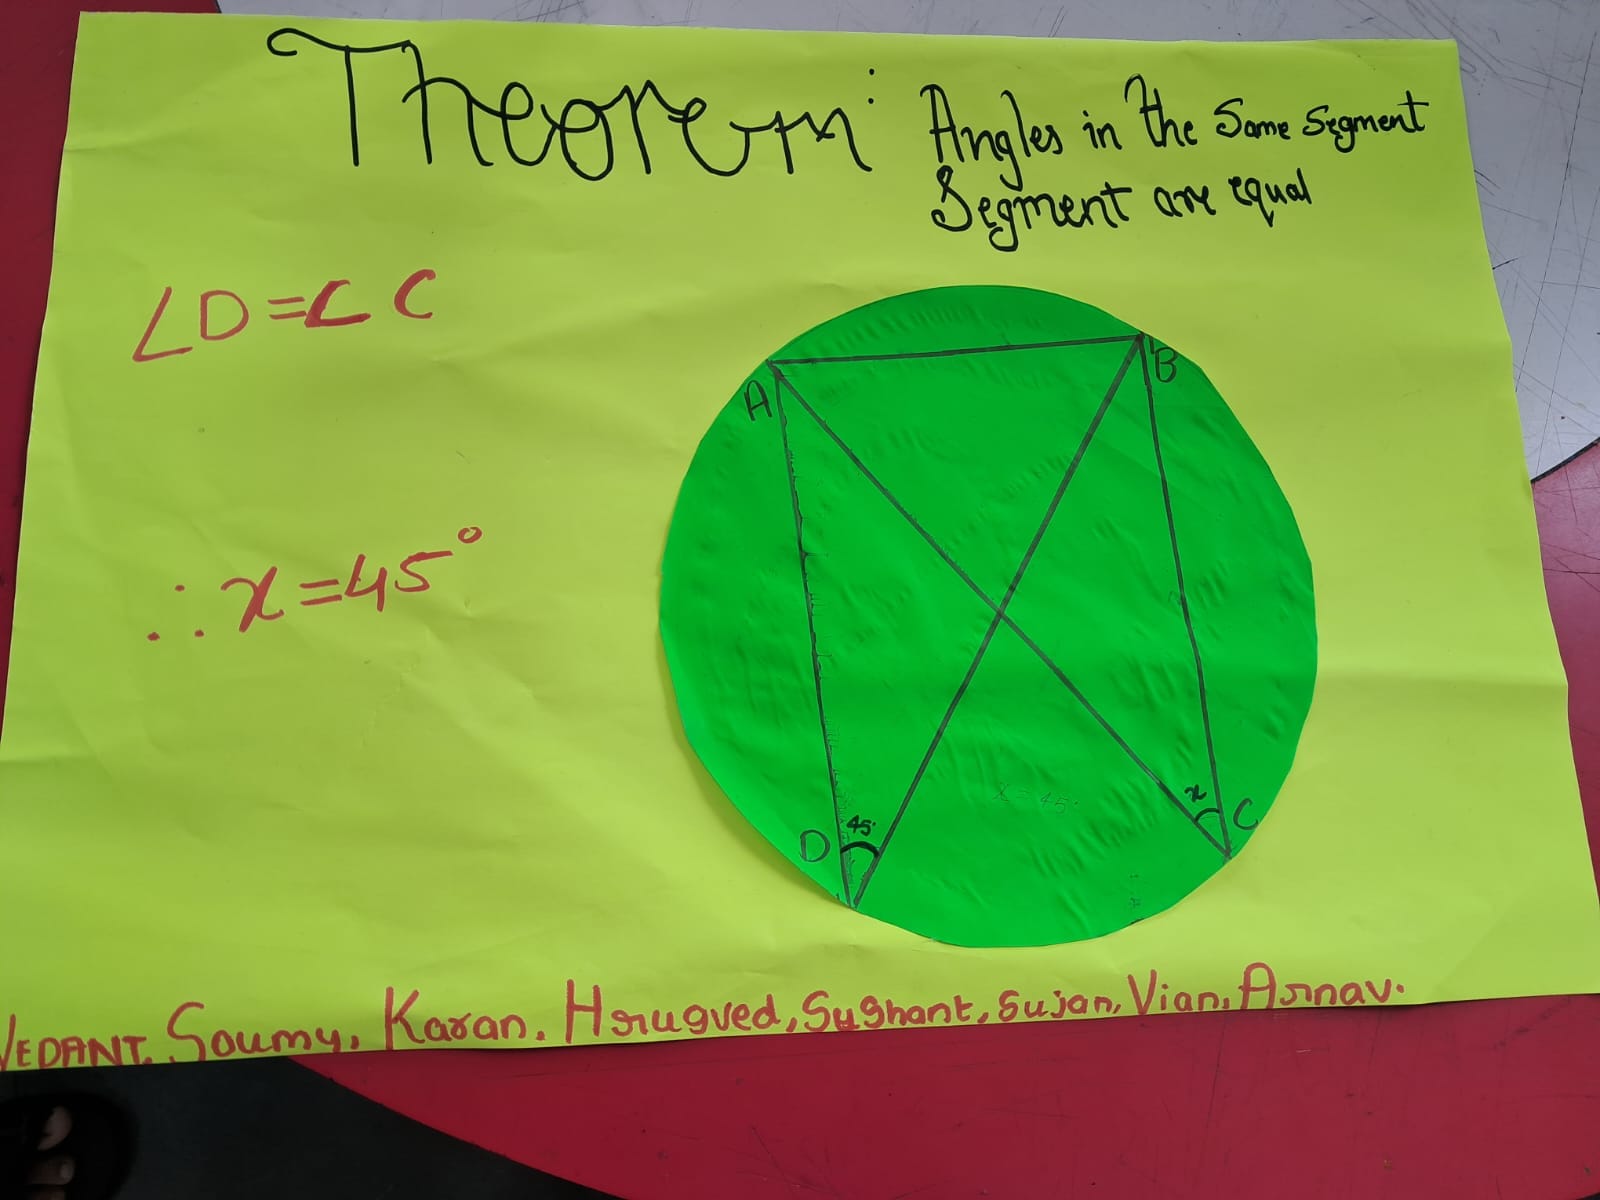 Theorem: Angles in the Same Segment
Segment are equal
∠D=∠C
∴ x=45°
A
B
D
45°
x
C
x=45°
VEDANT, Soumy, Karan, Hrugved, Sushant, Sujan, Vian, Arnav.